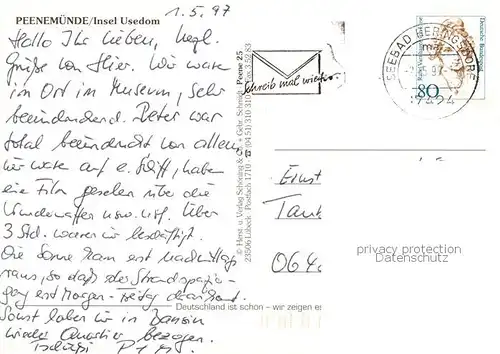 1.5.97
PEENEMÜNDE/Insel Usedom
Hallo Ihr Lieben, herzl.
Grüße von Hier. Wir waren
im Ort im Museum, sehr
beeindruckend. Peter war
total beeindruckt von allem,
wir waren auf e. Schiff, haben
ein Film gesehen über die
Wunderwaffen usw. usf. Über
3 Std. waren wir beschäftigt.
Die Sonne kam erst nachmittags
raus, so daß der Strandspazier-
gang erst Morgen - Freitag dran
Sonst haben wir in Bansin
wieder Quartier bezogen.
Tschüßi P + M
© Herst. u. Verlag Schöning & Co + Gebr. Schmidt
23506 Lübeck Postfach 1710
Peene 25
Deutschland ist schön – wir zeigen es
Schreib mal wieder
SEEBAD HERINGSDORF
17424
Deutsche Bundespost
80
Ernst
Tank
06
privacy protection
Datenschutz